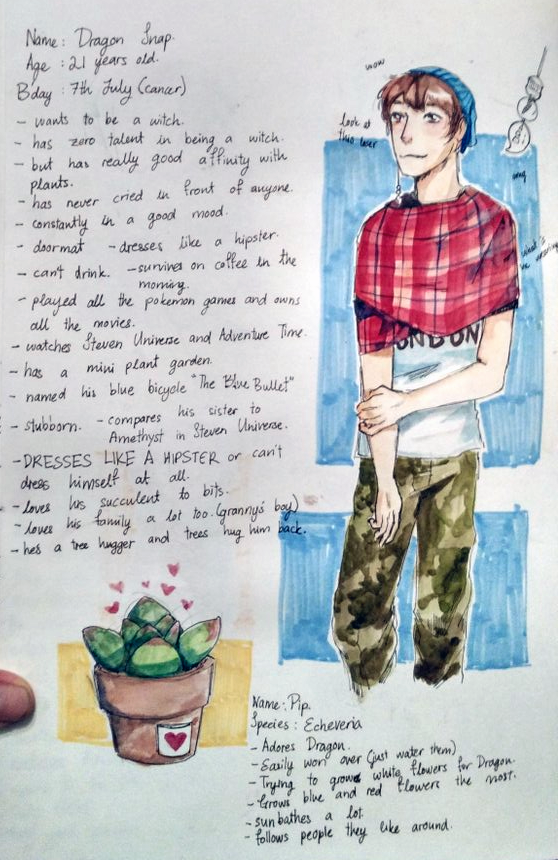 Name: Dragon Snap.
Age: 21 years old.
Bday: 7th July (cancer)
- wants to be a witch.
- has zero talent in being a witch.
- but has really good affinity with
plants.
- has never cried in front of anyone.
- constantly in a good mood.
- doormat - dresses like a hipster.
- can't drink. - survives on coffee in the
morning.
- played all the pokemon games and owns
all the movies.
- watches Steven Universe and Adventure Time.
- has a mini plant garden.
- named his blue bicycle "The Blue Bullet"
- stubborn. - compares his sister to
Amethyst in Steven Universe.
- DRESSES LIKE A HIPSTER or can't
dress himself at all.
- loves his succulent to bits.
- loves his family a lot too. (granny's boy)
- hes a tree hugger and trees hug him back.
wow
Look at
this loser
omg
what's
he wearing
ONDON
Name: Pip.
Species: Echeveria
- Adores Dragon.
- Easily won over (just water them)
- Trying to grow white flowers for Dragon.
- Grows blue and red flowers the most.
- sun bathes a lot.
- follows people they like around.